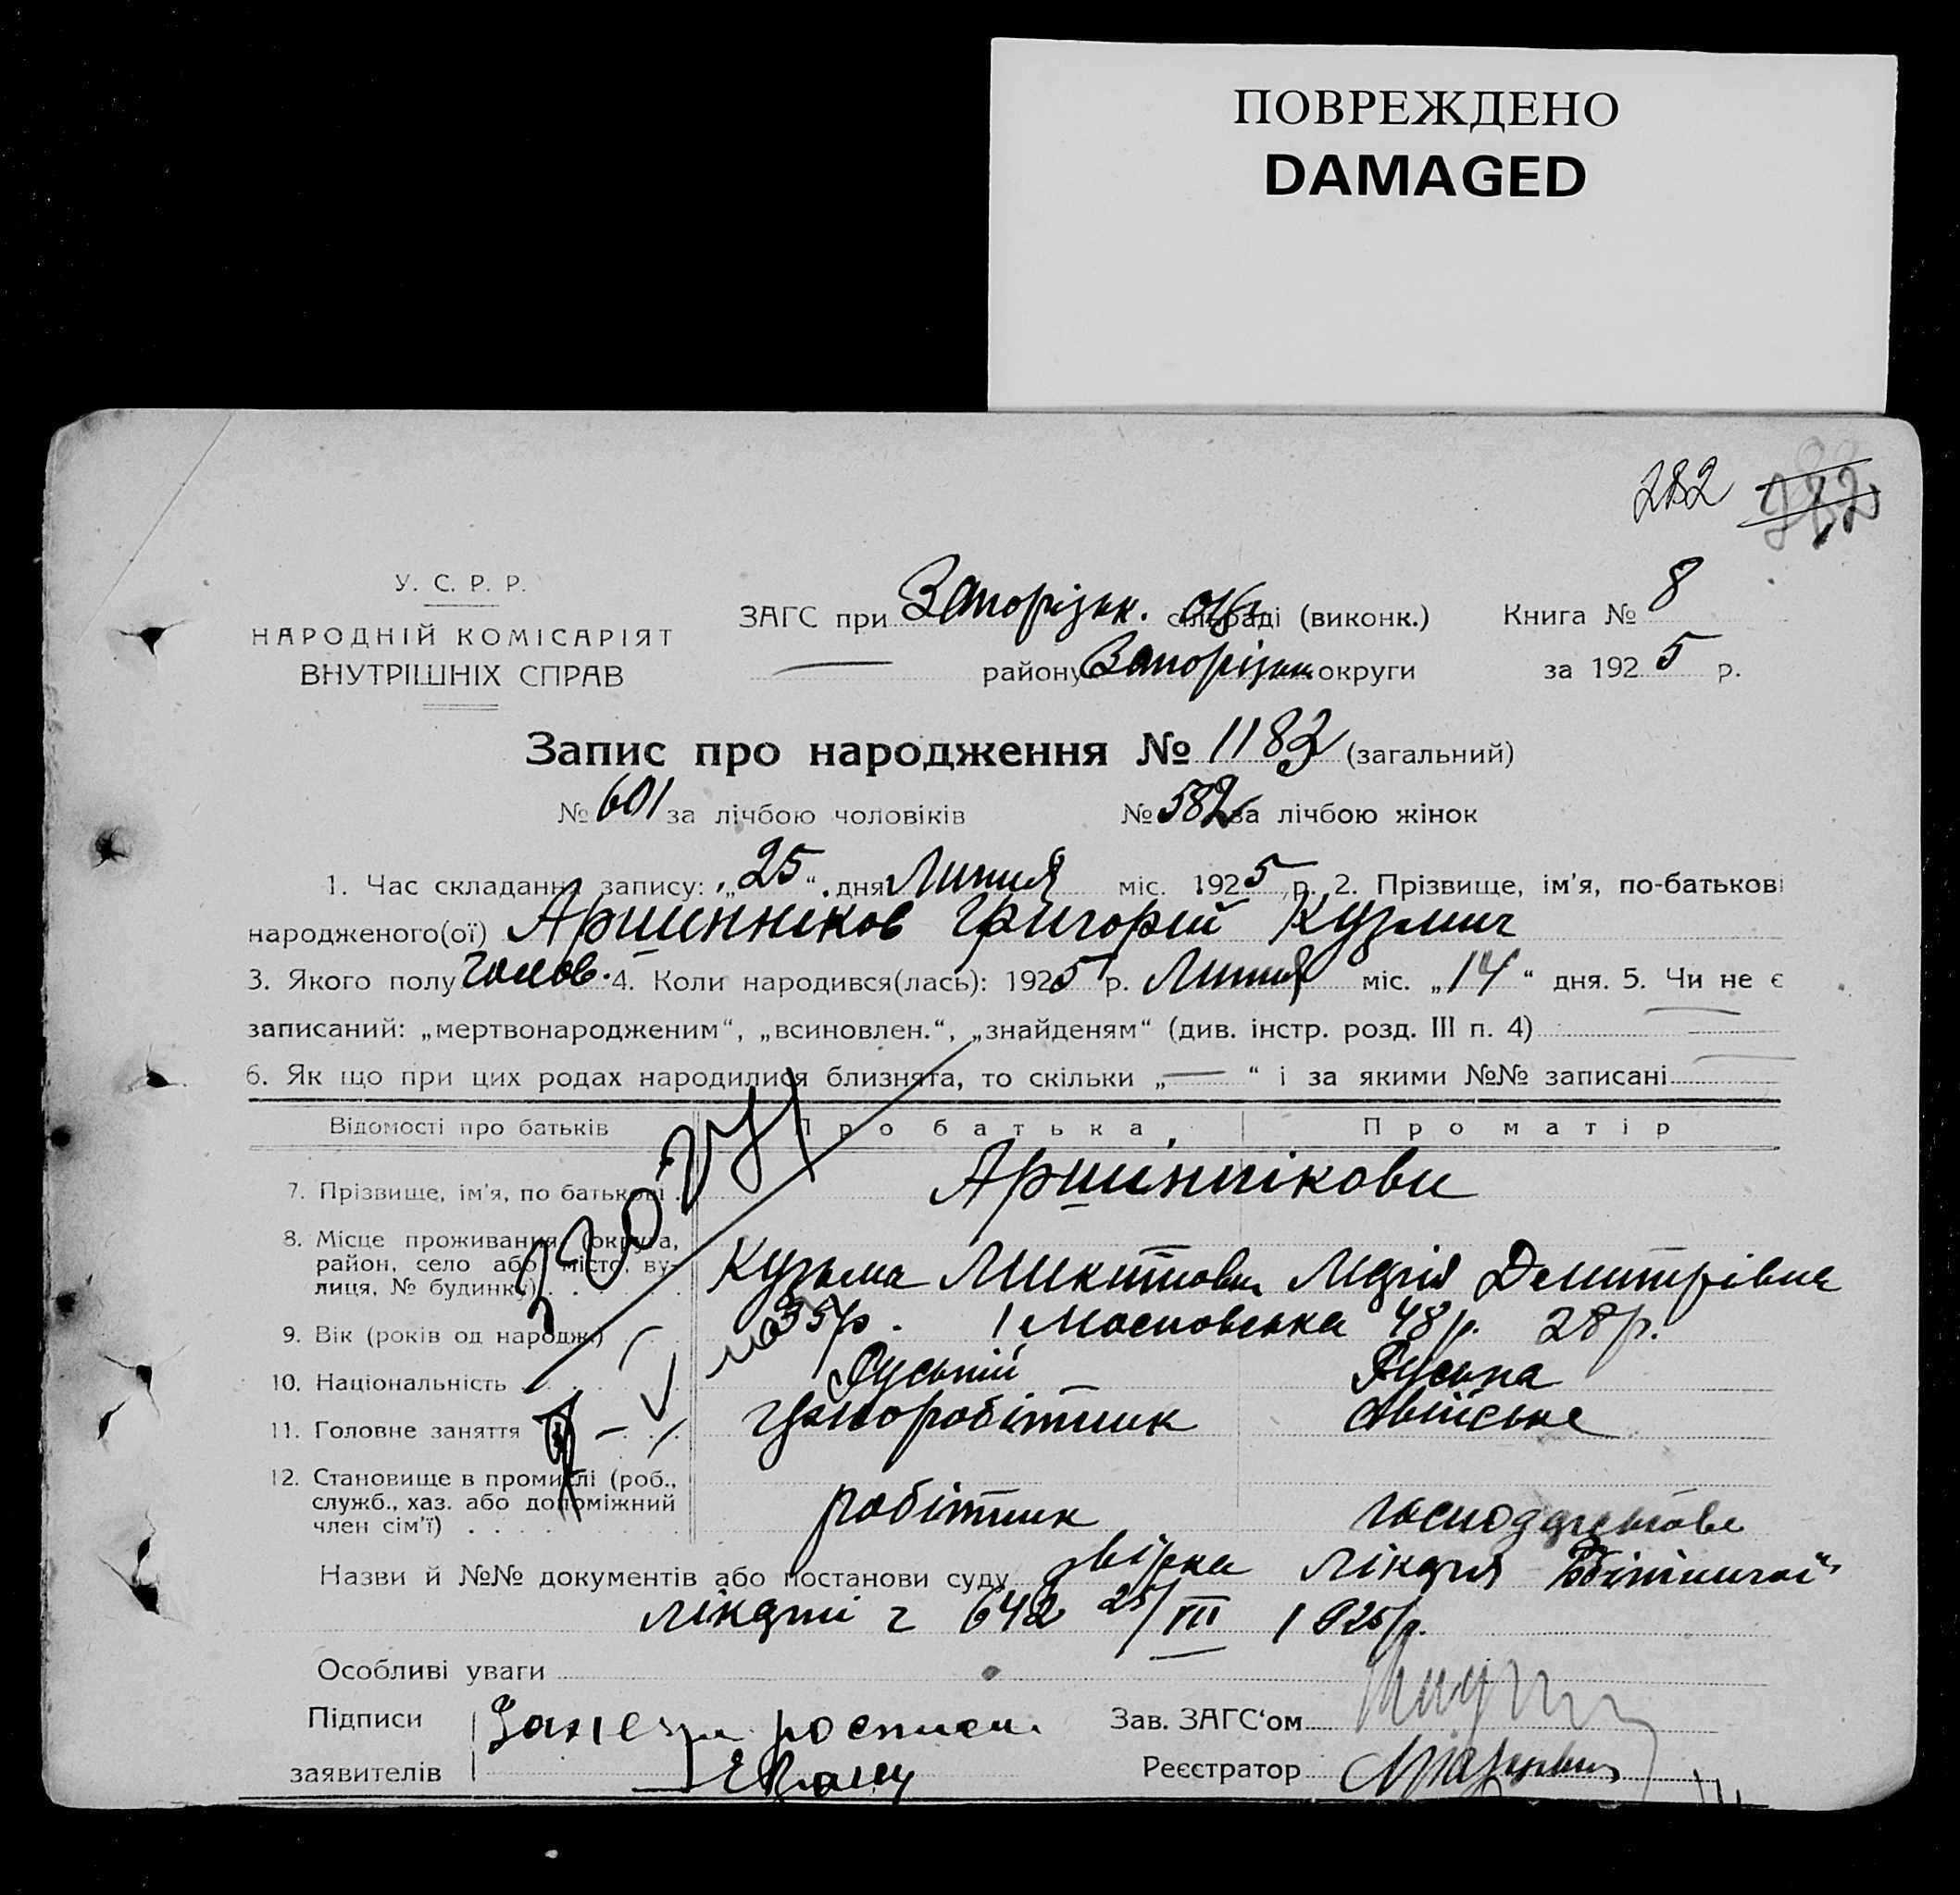 ПОВРЕЖДЕНО
DAMAGED
282
У. С. Р. Р.
НАРОДНІЙ КОМІСАРІЯТ
ВНУТРІШНІХ СПРАВ
ЗАГС при Запорізьк. окр. сільраді (виконк.)
Книга № 8
району Запорізьк. округи
за 1925 р.
Запис про народження № 1183 (загальний)
№ 601 за лічбою чоловіків № 582 за лічбою жінок
1. Час складання запису: „25“ дня Липня міс. 1925 р. 2. Прізвище, ім'я, по-батькові
народженого(ої) Аршинніков Григорій Кузмич
3. Якого полу чолов. 4. Коли народився(лась): 1925 р. Липня міс. „14“ дня. 5. Чи не є
записаний: „мертвонародженим“, „всиновлен.“, „знайденям“ (див. інстр. розд. III п. 4)
6. Як що при цих родах народилися близнята, то скільки „—“ і за якими №№ записані
Відомості про батьків Про батька, Про матір
7. Прізвище, ім'я, по батькові Аршиннікови
8. Місце проживання (округа, район, село або місто, вулиця, № будинку) Кузьма Микитович Марія Дмитрівна
9. Вік (років од народж.) 35 р. Московська 48 р. 28 р.
10. Національність Руський Руська
11. Головне заняття чорноробітник хатнє
12. Становище в промислі (роб., служб., хаз. або допоміжний член сім'ї) робітник господарстове
Назви й №№ документів або постанови суду довірка лікаря робітничої
лікарні ч 642 25/VII 1925 р.
Особливі уваги
Підписи
заявителів
Зав. ЗАГС‘ом
Реєстратор